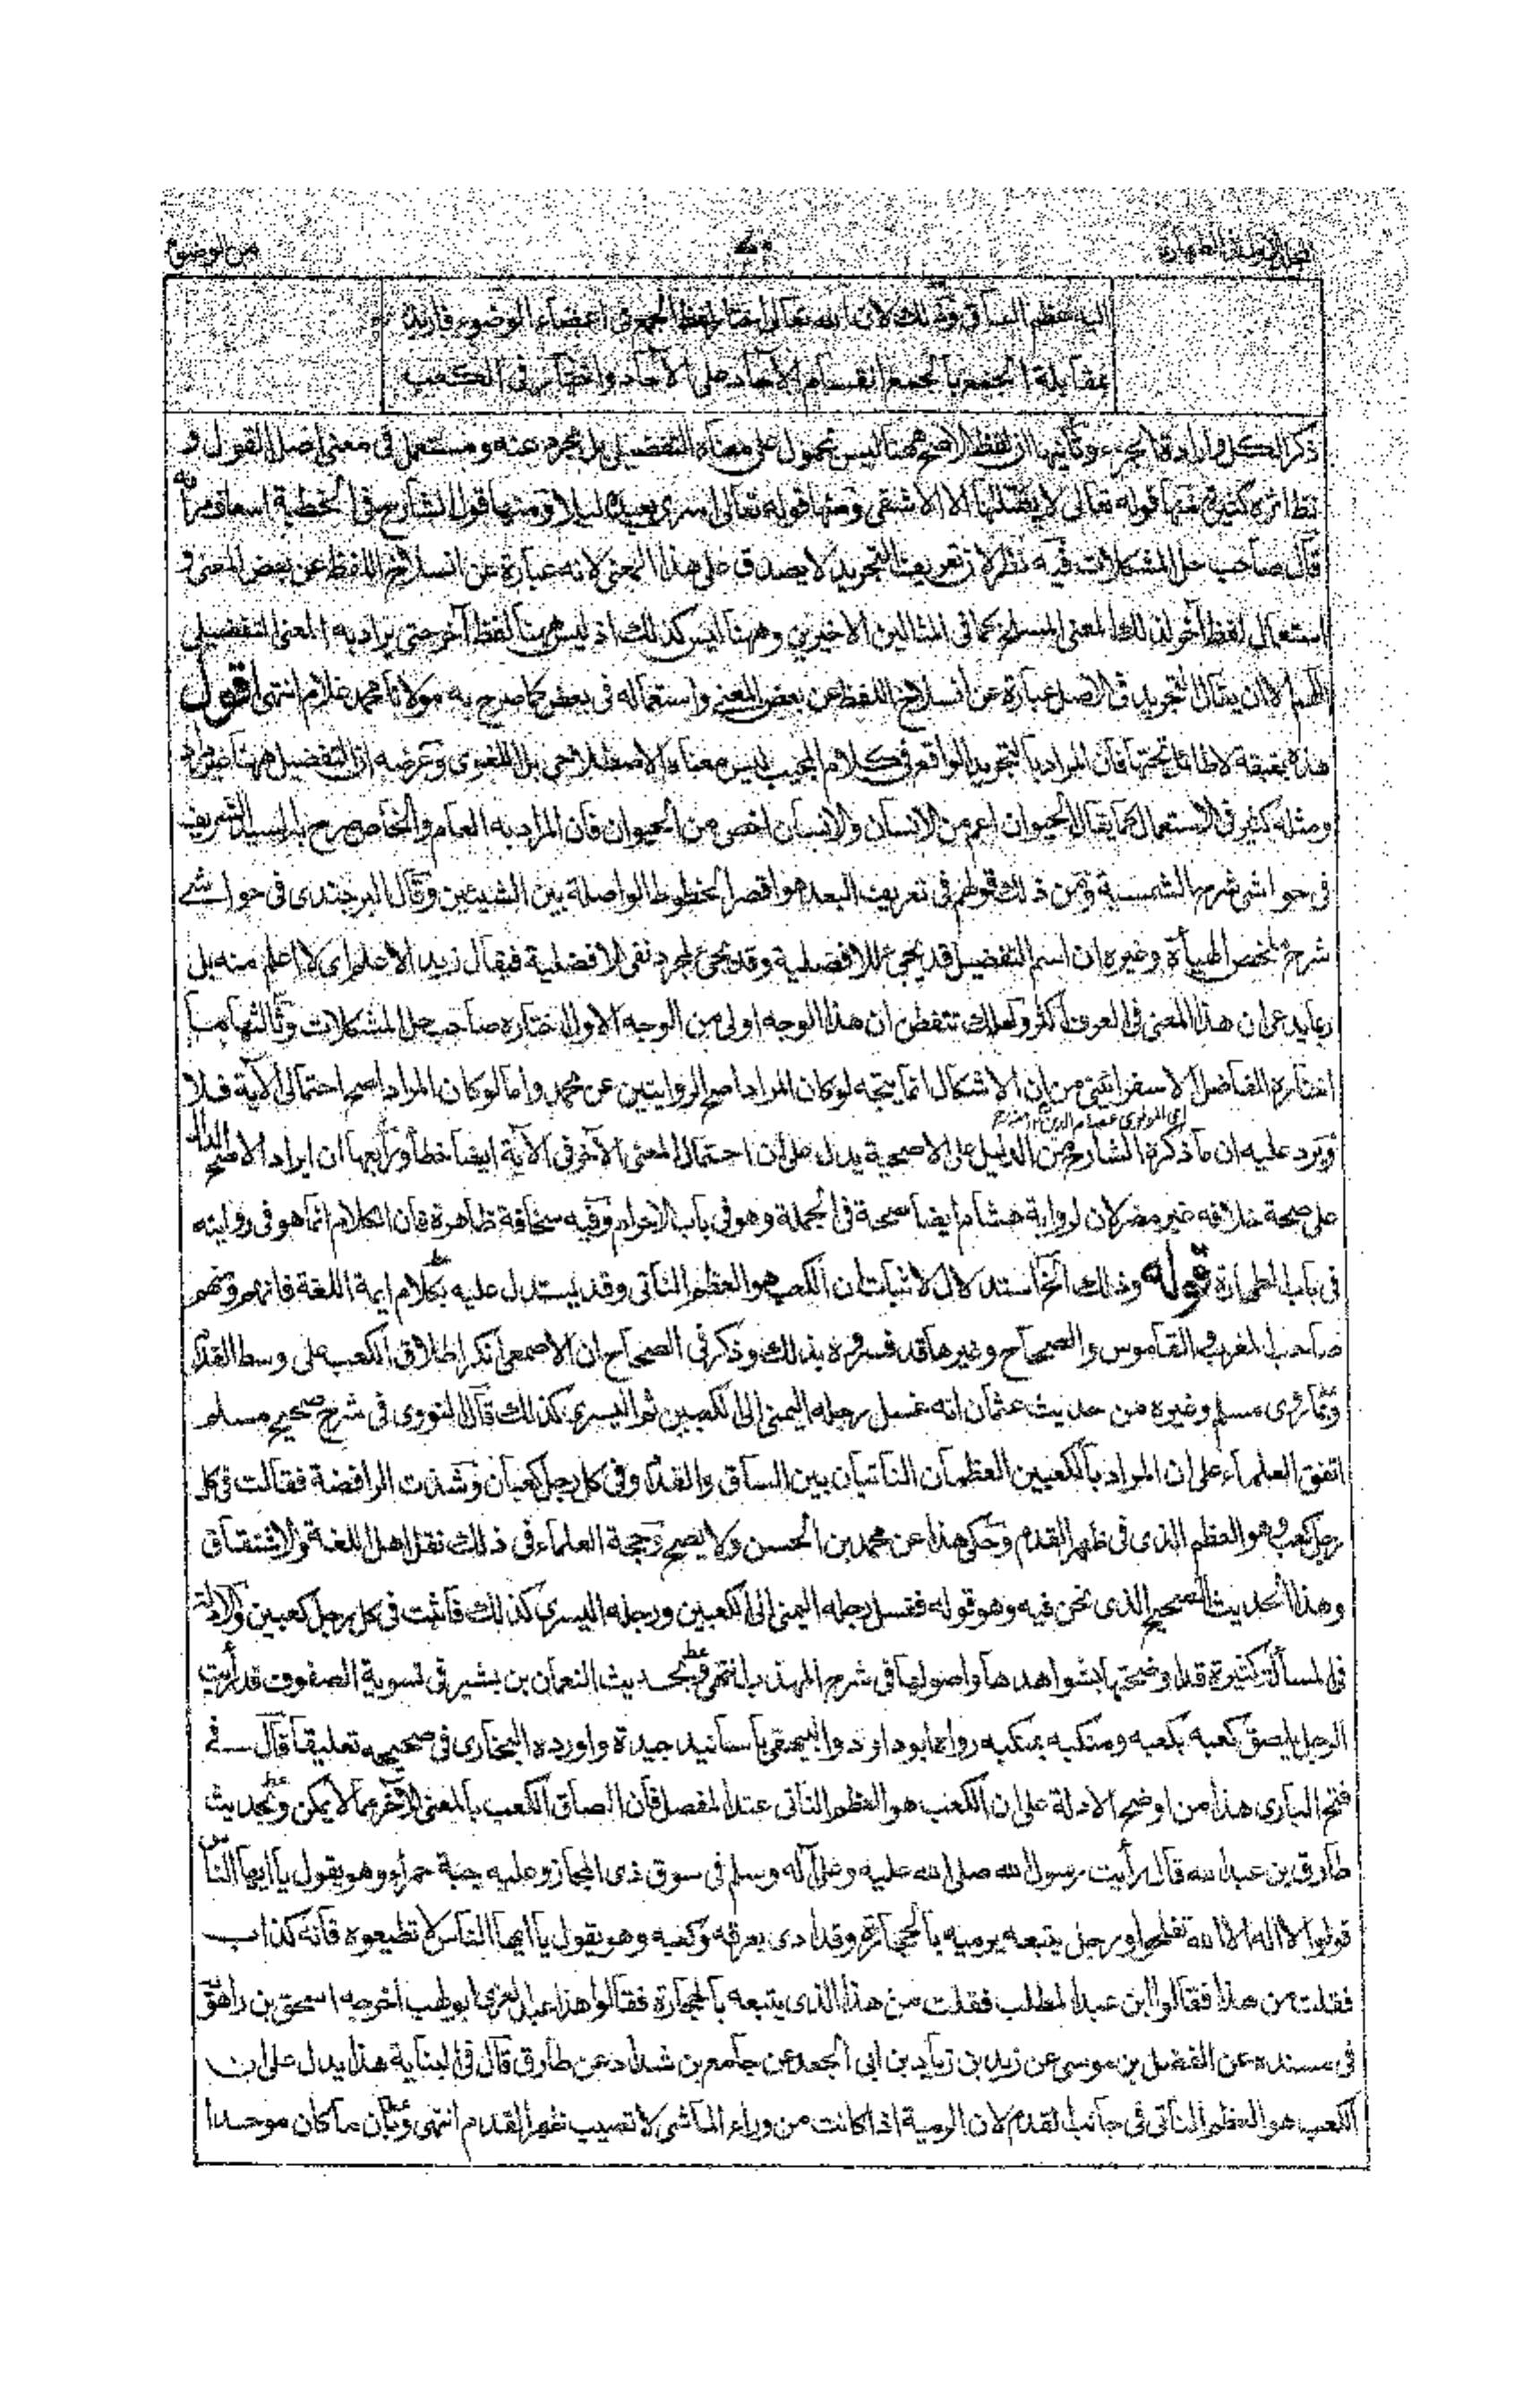 من الوضوء
٧٠
كتاب الطهارة
اليه عظم الساق وذلك لان الله تعالى اختار لفظ الجمع فى اعضاء الوضوء فاريد
بمقابلة الجمع بالجمع انقسام الآحاد على الآحاد واختار فى الكعب
ذكر الكل وارادة الجزء وثانيها ان لفظ الاصح ههنا ليس بمحمول على معناه التفضيلى بل مجرد عنه ومستعمل فى معنى اصل القول و
نظائره كثيرة منها قوله تعالى لا يصلٰها الا الاشقى ومنها قوله تعالى اسرى بعبده ليلا ومنها قول الشارح فى الخطبة
قال صاحب حل المشكلات فيه نظر لان تعريف التجريد لا يصدق على هذا المعنى لانه عبارة عن انسلاخ اللفظ عن بعض المعنى و
استعمال لفظ آخر لذلك المعنى المسلوخ كما فى المثالين الاخيرين وههنا ليس كذلك اذ ليس ههنا لفظ آخر حتى يراد به المعنى التفضيلى
اللهم الا ان يقال التجريد فى الاصل عبارة عن انسلاخ اللفظ عن بعض المعنى واستعماله فى بعض كما صرح به مولانا محمد غلام انتهى اقول
هذه بقبقة لا طائل تحتها فان المراد بالتجريد الواقع فى كلام المجيب ليس معناه الاصطلاحى بل اللغوى وغرضه ان التفضيل ههنا غير مراد
ومثله كثير فى الاستعمال كما يقال الحيوان اعم من الانسان والانسان اخص من الحيوان فان المراد به العام والخاص صرح به السيد الشريف
فى حواشى شرح الشمسية ومن ذلك قولهم فى تعريف البعد هو اقصر الخطوط الواصلة بين الشيئين وقال البرجندى فى حواشى
شرح ملخص الهيأة وغيره ان اسم التفضيل قد يجئ للافضلية وقد يجئ لمجرد نفى الافضلية فيقال زيد الاعلم اى لا اعلم منه بل
ربما يدعى ان هذا المعنى فى العرف اكثر ولعلك تتفطن ان هذا الوجه اولى من الوجه الاول اختاره صاحب حل المشكلات وثالثها ما
اختاره الفاضل الاسفرائنى من ان الاشكال انما يتجه لو كان المراد اصح الروايتين عن محمد واما لو كان المراد اصح احتمالى الآية فلا
اى المولوى عصام الدين
ويرد عليه ان ما ذكره الشارح من الدليل على الاصحية يدل على ان احتمال المعنى الآخر فى الآية ايضا خطأ ورابعها ان ايراد الاصح الدال
على صحة خلافه غير مضر لان لرواية هشام ايضا صحة فى الجملة وهو فى باب الاحرام وفيه سخافة ظاهرة فان الكلام انما هو فى روايته
فى باب الطهارة قوله وذلك الخ استدلال لاثبات ان الكعب هو العظم الناتى وقد يستدل عليه بكلام ايمة اللغة فانهم ومنهم
صاحب المغرب والقاموس والصحاح وغيرها قد فسروه بذلك وذكر فى الصحاح ان الاصمعى انكر اطلاق الكعب على وسط القدم
وبما روى مسلم وغيره من حديث عثمان انه غسل رجله اليمنى الى الكعبين ثم اليسرى كذلك قال النووى فى شرح صحيح مسلم
اتفق العلماء على ان المراد بالكعبين العظمان الناتيان بين الساق والقدم وفى كل رجل كعبان وشذت الرافضة فقالت فى كل
رجل كعب وهو العظم الذى فى ظهر القدم وحكى هذا عن محمد بن الحسن ولا يصح وحجة العلماء فى ذلك نقل اهل اللغة والاشتقاق
وهذا الحديث الصحيح الذى نحن فيه وهو قوله فغسل رجله اليمنى الى الكعبين ورجله اليسرى كذلك فاثبت فى كل رجل كعبين والادلة
فى المسألة كثيرة قد اوضحتها بشواهدها واصولها فى شرح المهذب انتهى وبحديث النعمان بن بشير فى تسوية الصفوف قد رأيت
الرجل يلصق كعبه بكعبه ومنكبه بمنكبه رواه ابو داود والبيهقى باسانيد جيدة واورده البخارى فى صحيحه تعليقا قال فى
فتح البارى هذا من اوضح الادلة على ان الكعب هو العظم الناتى عند المفصل فان الصاق الكعب بالمعنى الآخر مما لا يمكن وبحديث
طارق بن عبد الله قال رأيت رسول الله صلى الله عليه وعلى آله وسلم فى سوق ذى المجاز وعليه جبة حمراء وهو يقول يا ايها الناس
قولوا لا اله الا الله تفلحوا ورجل يتبعه يرميه بالحجارة وقد ادمى عرقوبه وكعبه وهو يقول يا ايها الناس لا تطيعوه فانه كذاب
فقلت من هذا فقالوا ابن عبد المطلب فقلت من هذا الذى يتبعه بالحجارة فقالوا هذا عبد العزى ابو لهب اخرجه اسحق بن راهويه
فى مسنده عن الفضل بن موسى عن زيد بن زياد بن ابى الجعد عن جامع بن شداد عن طارق قال فى البناية هذا يدل على ان
الكعب هو العظم الناتى فى جانب القدم لان الرمية اذا كانت من وراء الماشى لا تصيب ظهر القدم انتهى وبان ما كان موحدا